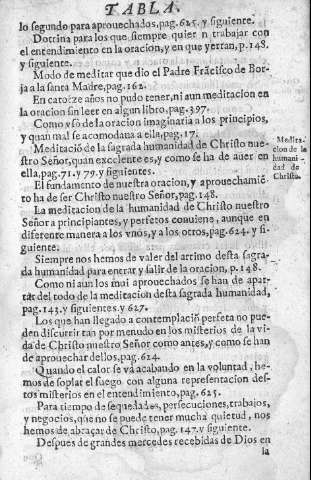 TABLA.
lo segundo para aprouechados, pag. 625. y siguiente.
Dotrina para los que siempre quier n trabajar con
el entendimiento en la oracion, y en que yerran, p. 148.
y siguiente.
Modo de meditar que dio el Padre Frãcisco de Bor-
ja a la santa Madre, pag. 162.
En catorze años no pudo tener, ni aun meditacion en
la oracion sin leer en algun libro, pag. 397.
Como vsó de la oracion imaginaria a los principios,
y quan mal se acomodaua a ella, pag. 17.
Meditació de la sagrada humanidad de Christo nue-
stro Señor, quan excelente es, y como se ha de auer en
ella, pag. 71. y 79. y siguientes.
Medita-
cion de la
humani-
dad de
Christo.
El fundamento de nuestra oracion, y aprouechamiē
to ha de ser Christo nuestro Señor, pag. 148.
La meditacion de la humanidad de Christo nuestro
Señor a principiantes, y perfetos conuiene, aunque en
diferente manera a los vnos, y a los otros, pag. 624. y si-
guiente.
Siempre nos hemos de valer del arrimo desta sagra-
da humanidad para entrar y salir de la oracion, p. 148.
Como ni aun los mui aprouechados se han de apar-
tar del todo de la meditacion desta sagrada humanidad,
pag. 143. y siguientes. y 627.
Los que han llegado a contemplació perfeta no pue-
den discurrir tan por menudo en los misterios de la vi-
da de Christo nuestro Señor como antes, y como se han
de aprouechar dellos, pag. 624.
Quando el calor se vá acabando en la voluntad, he-
mos de soplar el fuego con alguna representacion des-
tos misterios en el entendimiento, pag. 625.
Para tiempo de sequedades, persecuciones, trabajos,
y negocios, que no se puede tener mucha quietud, nos
hemos de abraçar de Christo, pag. 147. y siguiente.
Despues de grandes mercedes recebidas de Dios en
la